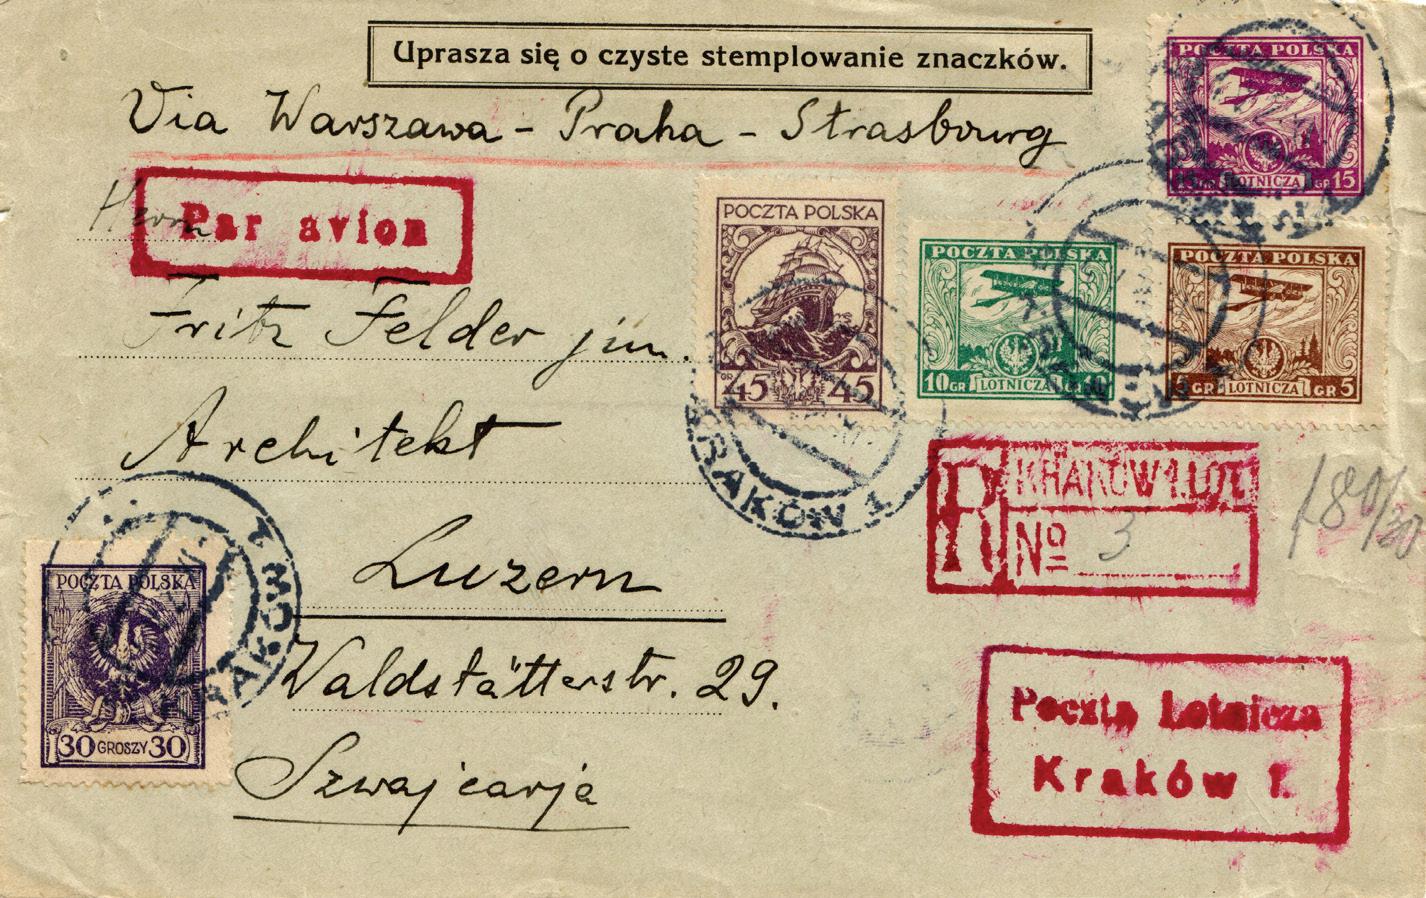 Uprasza się o czyste stemplowanie znaczków.
Via Warszawa - Praha - Strasbourg
Herrn
Par avion
Fritz Felder jun.
Architekt
Luzern
Waldstätterstr. 29.
Szwajcarja
POCZTA POLSKA
15 GR LOTNICZA GR 15
POCZTA POLSKA
GR 45 45
POCZTA POLSKA
10 GR LOTNICZA 10
POCZTA POLSKA
5 GR LOTNICZA GR 5
KRAKÓW 1
R KRAKÓW 1.LOT.
№ 3
180/30
POCZTA POLSKA
30 GROSZY 30
KRAKÓW 1
Poczta Lotnicza
Kraków 1.